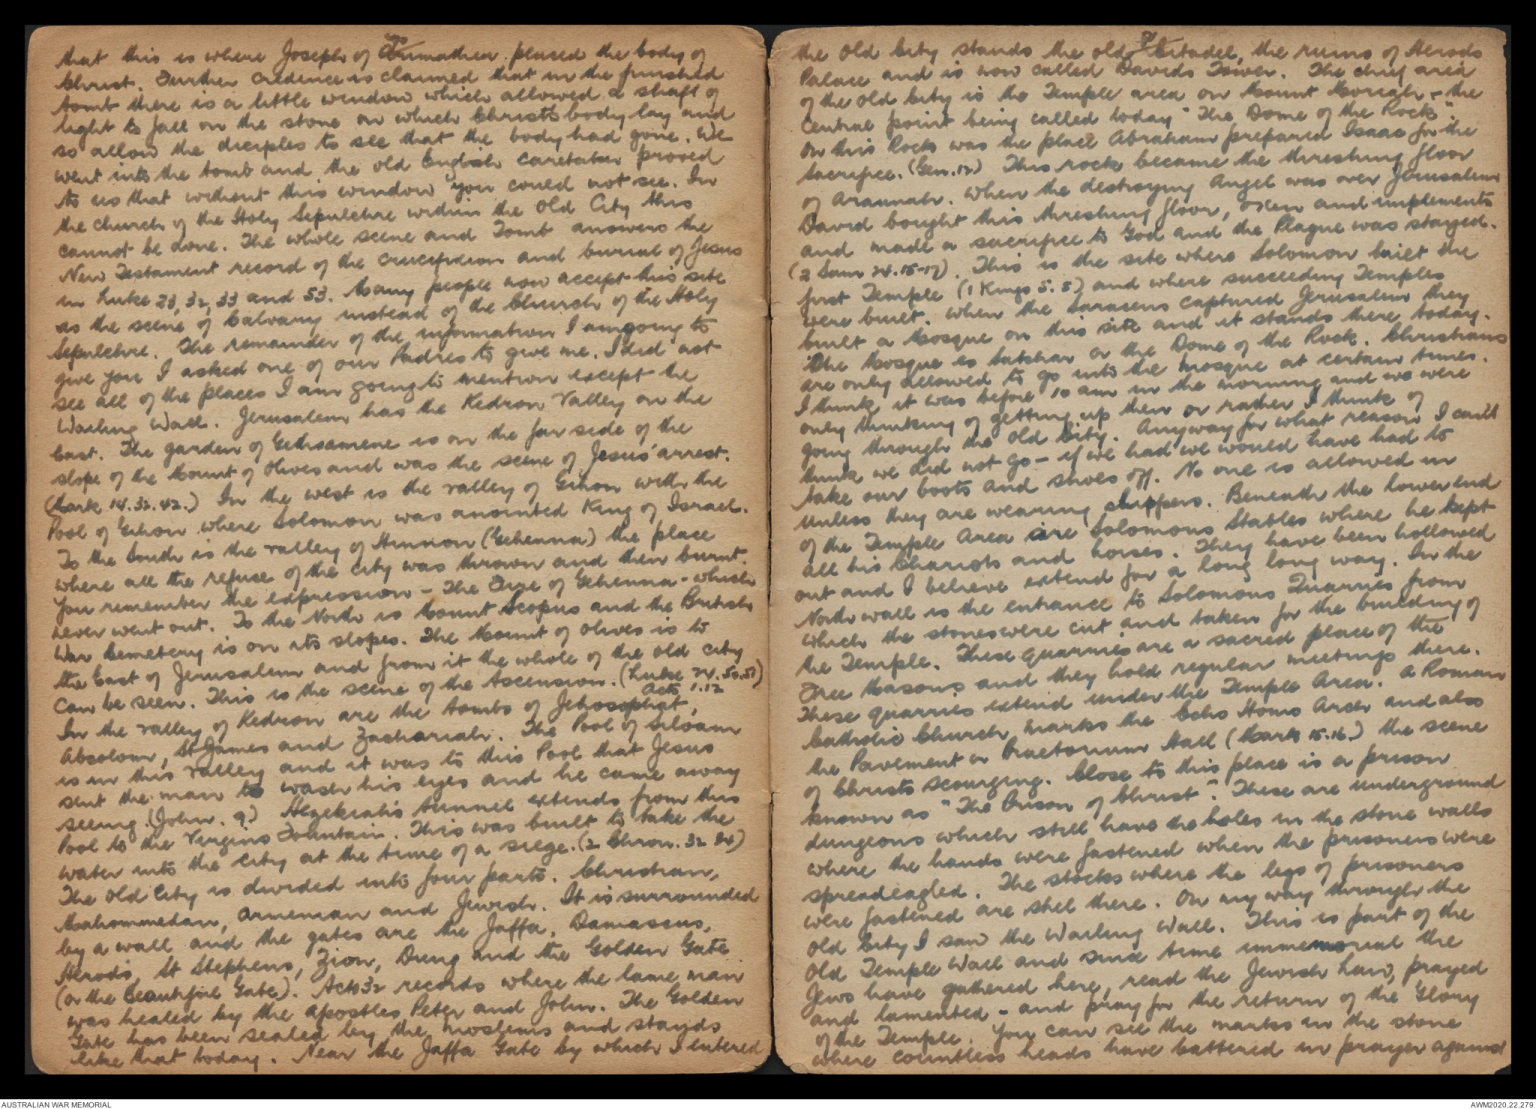 70
that this is where Joseph of Arimathea placed the body of
Christ. Further credence is claimed that in the finished
tomb there is a little window which allowed a shaft of
light to fall on the stone on which Christs body lay and
so allow the disciples to see that the body had gone. We
went into the tomb and the old English caretaker proved
to us that without this window you could not see. In
the church of the Holy Sepulchre within the Old City this
cannot be done. The whole scene and Tomb answers the
New Testament record of the crucifixion and burial of Jesus
in Luke 23, 32, 33 and 53. Many people now accept this site
as the scene of Calvary instead of the Church of the Holy
Sepulchre. The remainder of the information I am going to
give you I asked one of our Padres to give me. I did not
see all of the places I am going to mention except the
Wailing Wall. Jerusalem has the Kedron Valley on the
East. The garden of Gethsamene is on the far side of the
slope of the Mount of Olives and was the scene of Jesus' arrest.
(Mark 14. 32. 42.) In the west is the valley of Gihon with the
Pool of Gihon where Solomon was anointed King of Israel.
To the South is the valley of Hinnon (Gehenna) the place
where all the refuse of the city was thrown and then burnt.
You remember the expression - The Fire of Gehenna - which
never went out. To the North is Mount Scopus and the British
War Cemetery is on its slopes. The Mount of Olives is to
the East of Jerusalem and from it the whole of the old city
can be seen. This is the scene of the Ascension. (Luke 24. 50.51)
Acts 1.12
In the valley of Kedron are the tombs of Jehosophat,
Absolom, St James and Zachariah. The Pool of Siloam
is in this valley and it was to this Pool that Jesus
sent the man to wash his eyes and he came away
seeing (John. 9) Hezekiahs tunnel extends from this
Pool to the Virgins Fountain. This was built to take the
water into the city at the time of a siege. (2 Chron. 32
The Old City is divided into four parts. Christian,
Mahommedan, Armenian and Jewish. It is surrounded
by a wall and the gates are the Jaffa, Damascus,
Herods, St Stephens, Zion, Dung and the Golden Gate
(or the Beautiful Gate). Acts 32 records where the lame man
was healed by the apostles Peter and John. The Golden
Gate has been sealed by the moslems and stands
like that today. Near the Jaffa Gate by which I entered
71
the Old City stands the old Citadel, the ruins of Herods
Palace and is now called Davids Tower. The chief area
of the Old City is the Temple area on Mount Moriah, the
central point being called today "The Dome of the Rock".
On this Rock was the place Abraham prepared Isaac for the
sacrifice. (Gen. This rock became the threshing floor
of Araunah. When the destroying Angel was over Jerusalem
David bought this threshing floor, oxen and implements
and made a sacrifice to God and the Plague was stayed.
(2 Sam 24. 15-17). This is the site where Solomon built the
first Temple (1 Kings 5. 5) and where succeeding Temples
were built. When the Saracens captured Jerusalem they
built a Mosque on this site and it stands there today.
The Mosque es or the Dome of the Rock. Christians
are only allowed to go into the mosque at certain times.
I think it was before 10 am in the morning and we were
only thinking of getting up then or rather I think of
going through the Old City. Anyway for what reason I can't
think we did not go - if we had we would have had to
take our boots and shoes off. No one is allowed in
unless they are wearing slippers. Beneath the lower end
of the Temple Area are Solomons Stables where he kept
all his Chariots and horses. They have been hollowed
out and I believe extend for a long long way. In the
North wall is the entrance to Solomons Quarries from
which the stones were cut and taken for the building of
the Temple. These quarries are a sacred place of the
Free Masons and they hold regular meetings there.
These quarries extend under the Temple Area. A Roman
Catholic Church marks the Echo Homo Arch and also
the Pavement or Praetorium Hall (Mark 15. 16.) the scene
of Christs scourging. Close to this place is a prison
known as "The Prison of Christ". These are underground
dungeons which still have the holes in the stone walls
where the hands were fastened when the prisoners were
spreadeagled. The stocks where the legs of prisoners
were fastened are still there. On my way through the
Old City I saw the Wailing Wall. This is part of the
Old Temple Wall and since time immemorial the
Jews have gathered here, read the Jewish Law, prayed
and lamented - and pray for the return of the Glory
of the Temple. You can see the marks in the stone
where countless heads have battered in prayer against
AUSTRALIAN WAR MEMORIAL
AWM2020.22.279